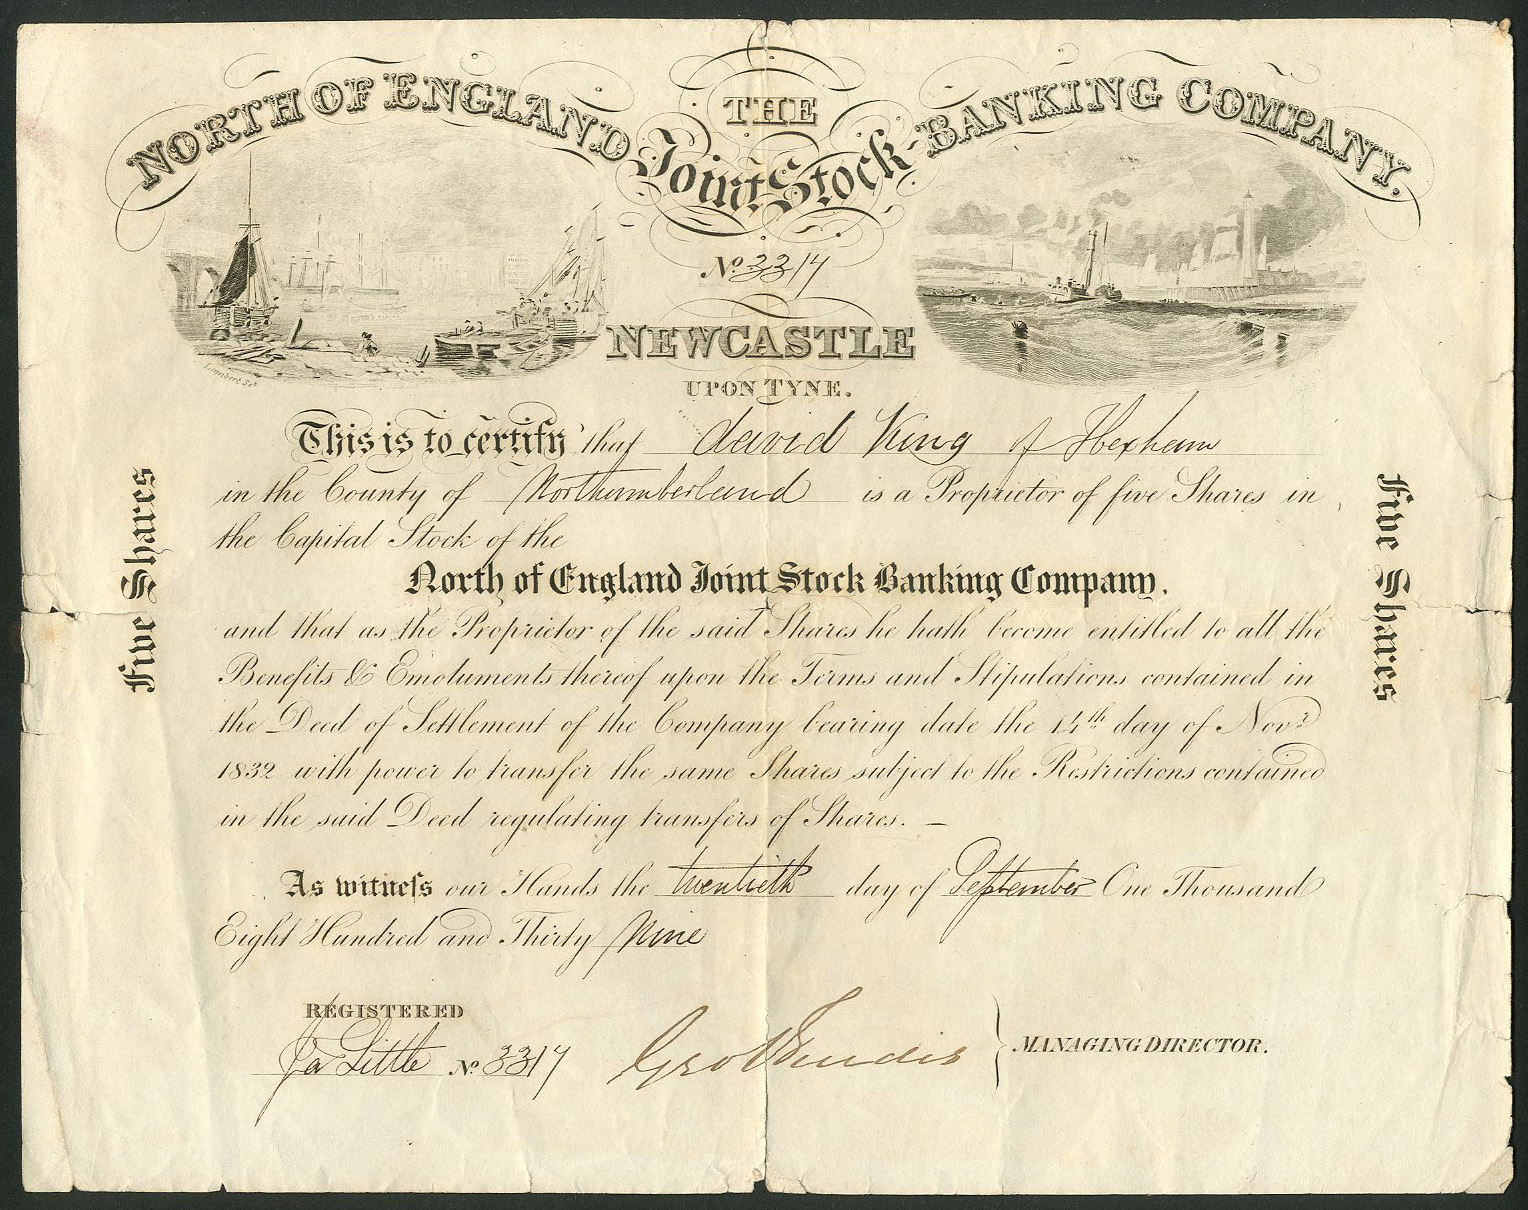 THE
NORTH OF ENGLAND Joint Stock BANKING COMPANY.
No. 3317
NEWCASTLE
UPON TYNE.
Lambert Sct
This is to certify that David King of Hexham
in the County of Northumberland is a Proprietor of five Shares in
the Capital Stock of the
North of England Joint Stock Banking Company.
and that as the Proprietor of the said Shares he hath become entitled to all the
Benefits & Emoluments thereof upon the Terms and Stipulations contained in
the Deed of Settlement of the Company bearing date the 14th day of Novr
1832 with power to transfer the same Shares subject to the Restrictions contained
in the said Deed regulating transfers of Shares. —
As witness our Hands the twentieth day of September One Thousand
Eight Hundred and Thirty Nine
REGISTERED
Ja Little No. 3317
Geo MANAGING DIRECTOR.
Five Shares
Five Shares